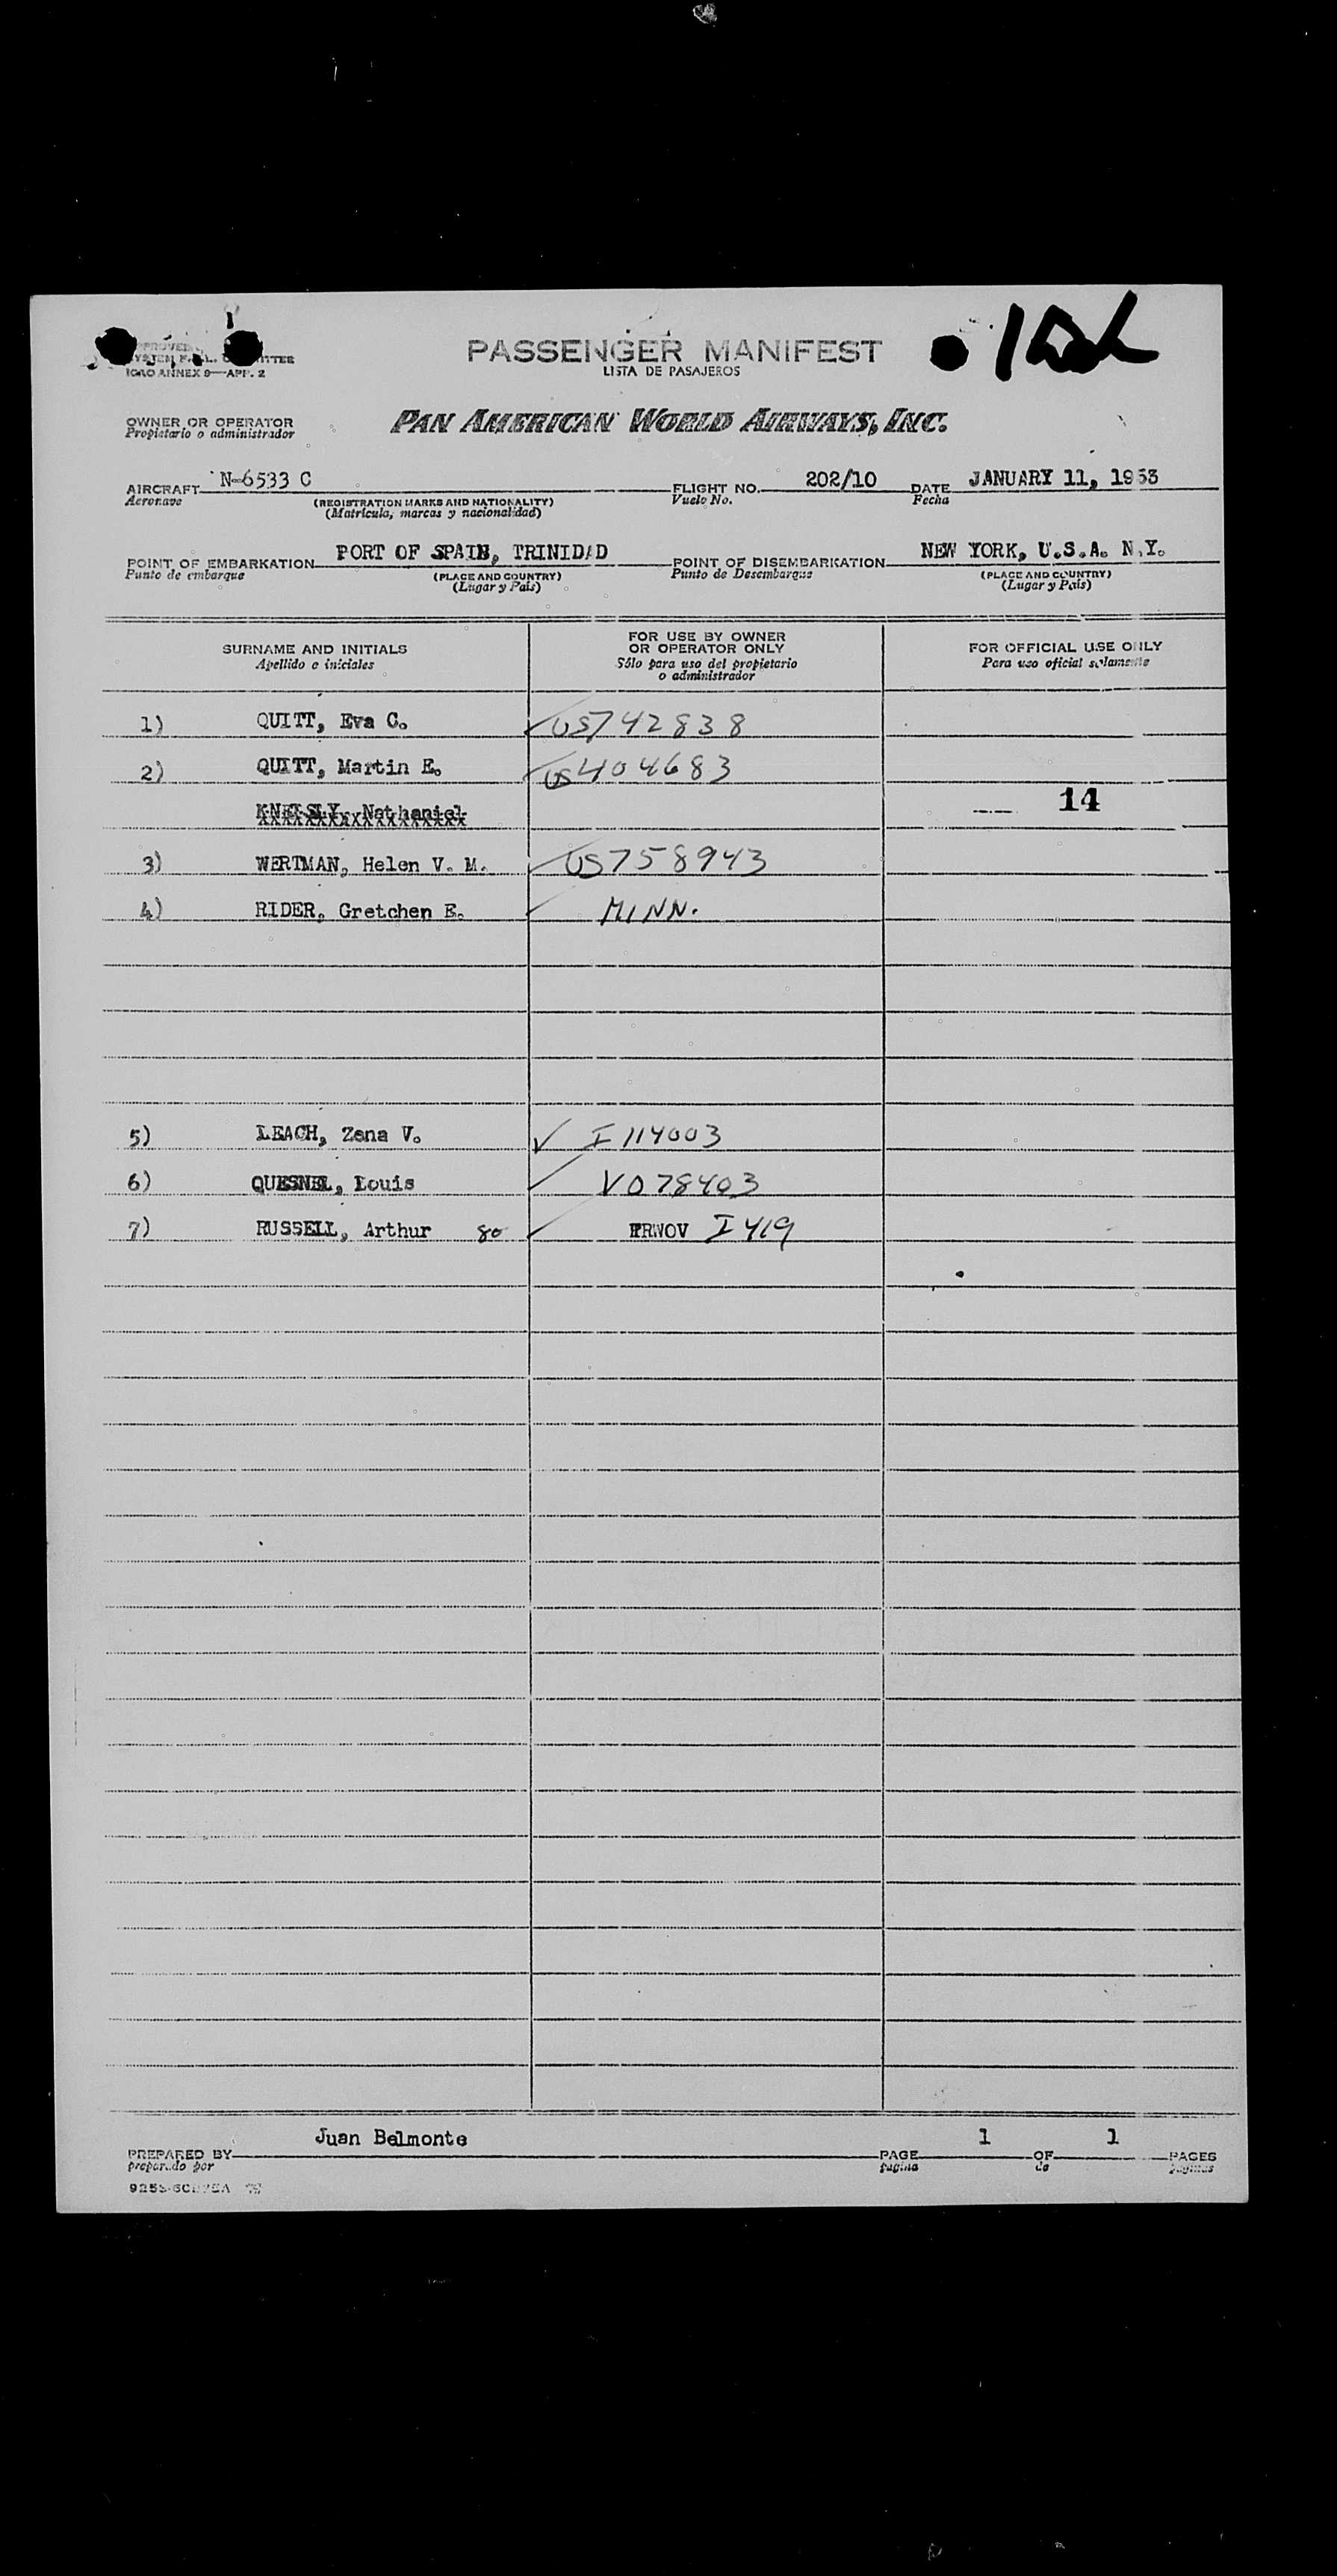 PASSENGER MANIFEST
LISTA DE PASAJEROS
ICAO ANNEX 9—APP. 2
OWNER OR OPERATOR
Propietario o administrador
PAN AMERICAN WORLD AIRWAYS, INC.
AIRCRAFT N-6533 C FLIGHT NO. 202/10 DATE JANUARY 11, 1953
Aeronave (REGISTRATION MARKS AND NATIONALITY) Vuelo No. Fecha
(Matrícula, marcas y nacionalidad)
POINT OF EMBARKATION PORT OF SPAIN, TRINIDAD POINT OF DISEMBARKATION NEW YORK, U.S.A. N.Y.
Punto de embarque (PLACE AND COUNTRY) Punto de Desembarque (PLACE AND COUNTRY)
(Lugar y País) (Lugar y País)
SURNAME AND INITIALS FOR USE BY OWNER OR OPERATOR ONLY FOR OFFICIAL USE ONLY
Apellido e iniciales Sólo para uso del propietario o administrador Para uso oficial solamente
1) QUITT, Eva C. US742838
2) QUITT, Martin E. US404683
Nathaniel 14
3) WERTMAN, Helen V. M. US758943
4) RIDER, Gretchen E. MINN.
5) LEACH, Zena V. I 114003
6) QUESNEL, Louis V078403
7) RUSSELL, Arthur 80 I 419
PREPARED BY Juan Belmonte PAGE 1 OF 1 PAGES
preparado por pagina de paginas